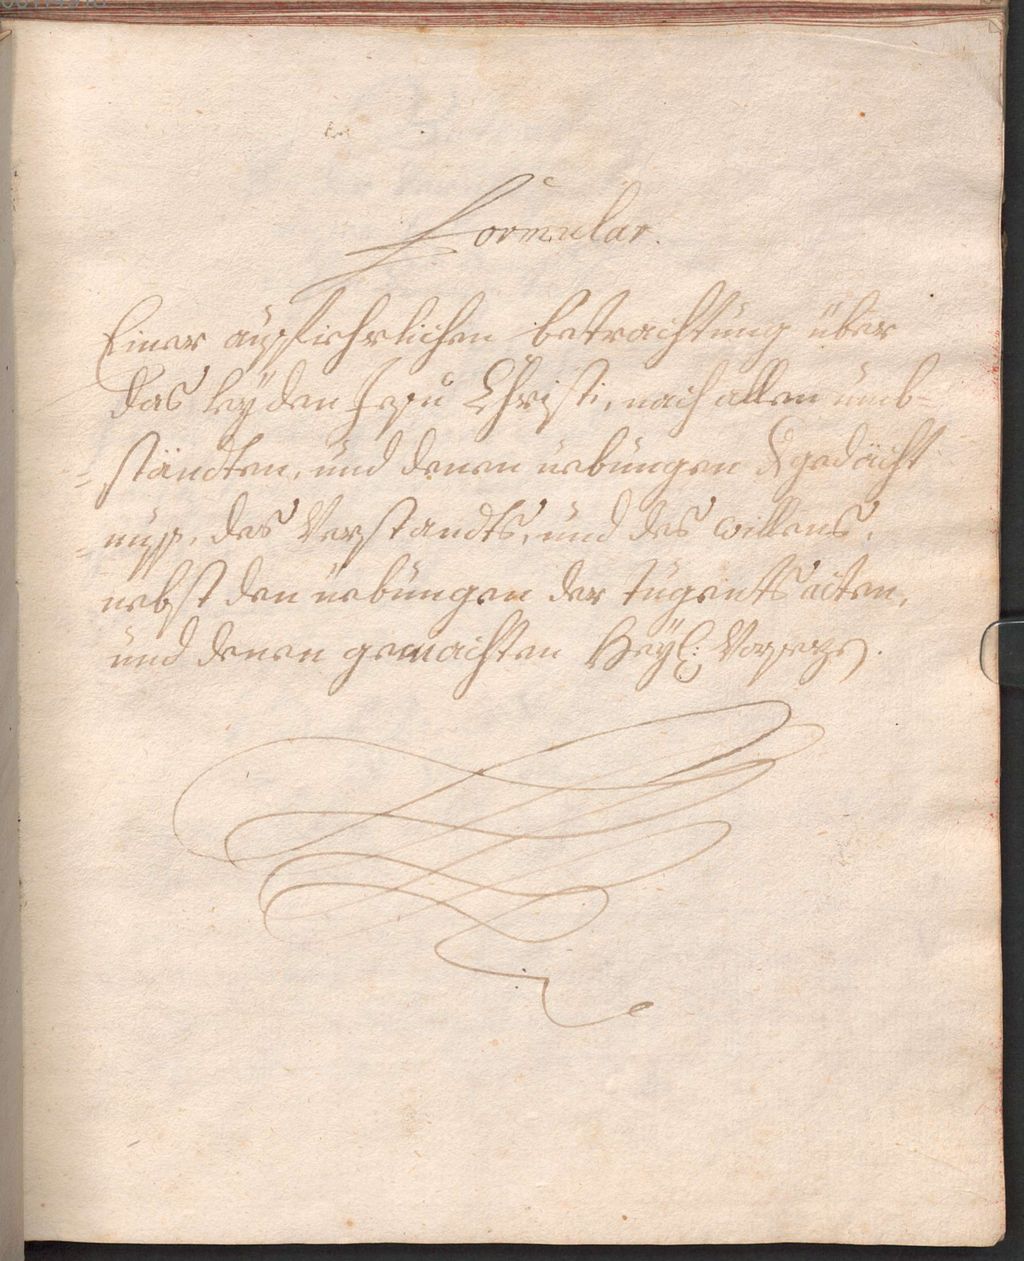 Formular.
Einer ausfiehrlichen betrachtung über
das leyden Jesu Christi, nach allen umb-
=ständten, und denen uebungen d gedächt
=nuss, des Verstandts, und des willens,
nebst den uebungen der tugents acten,
und denen gemachten Heyl: Vorsezen.